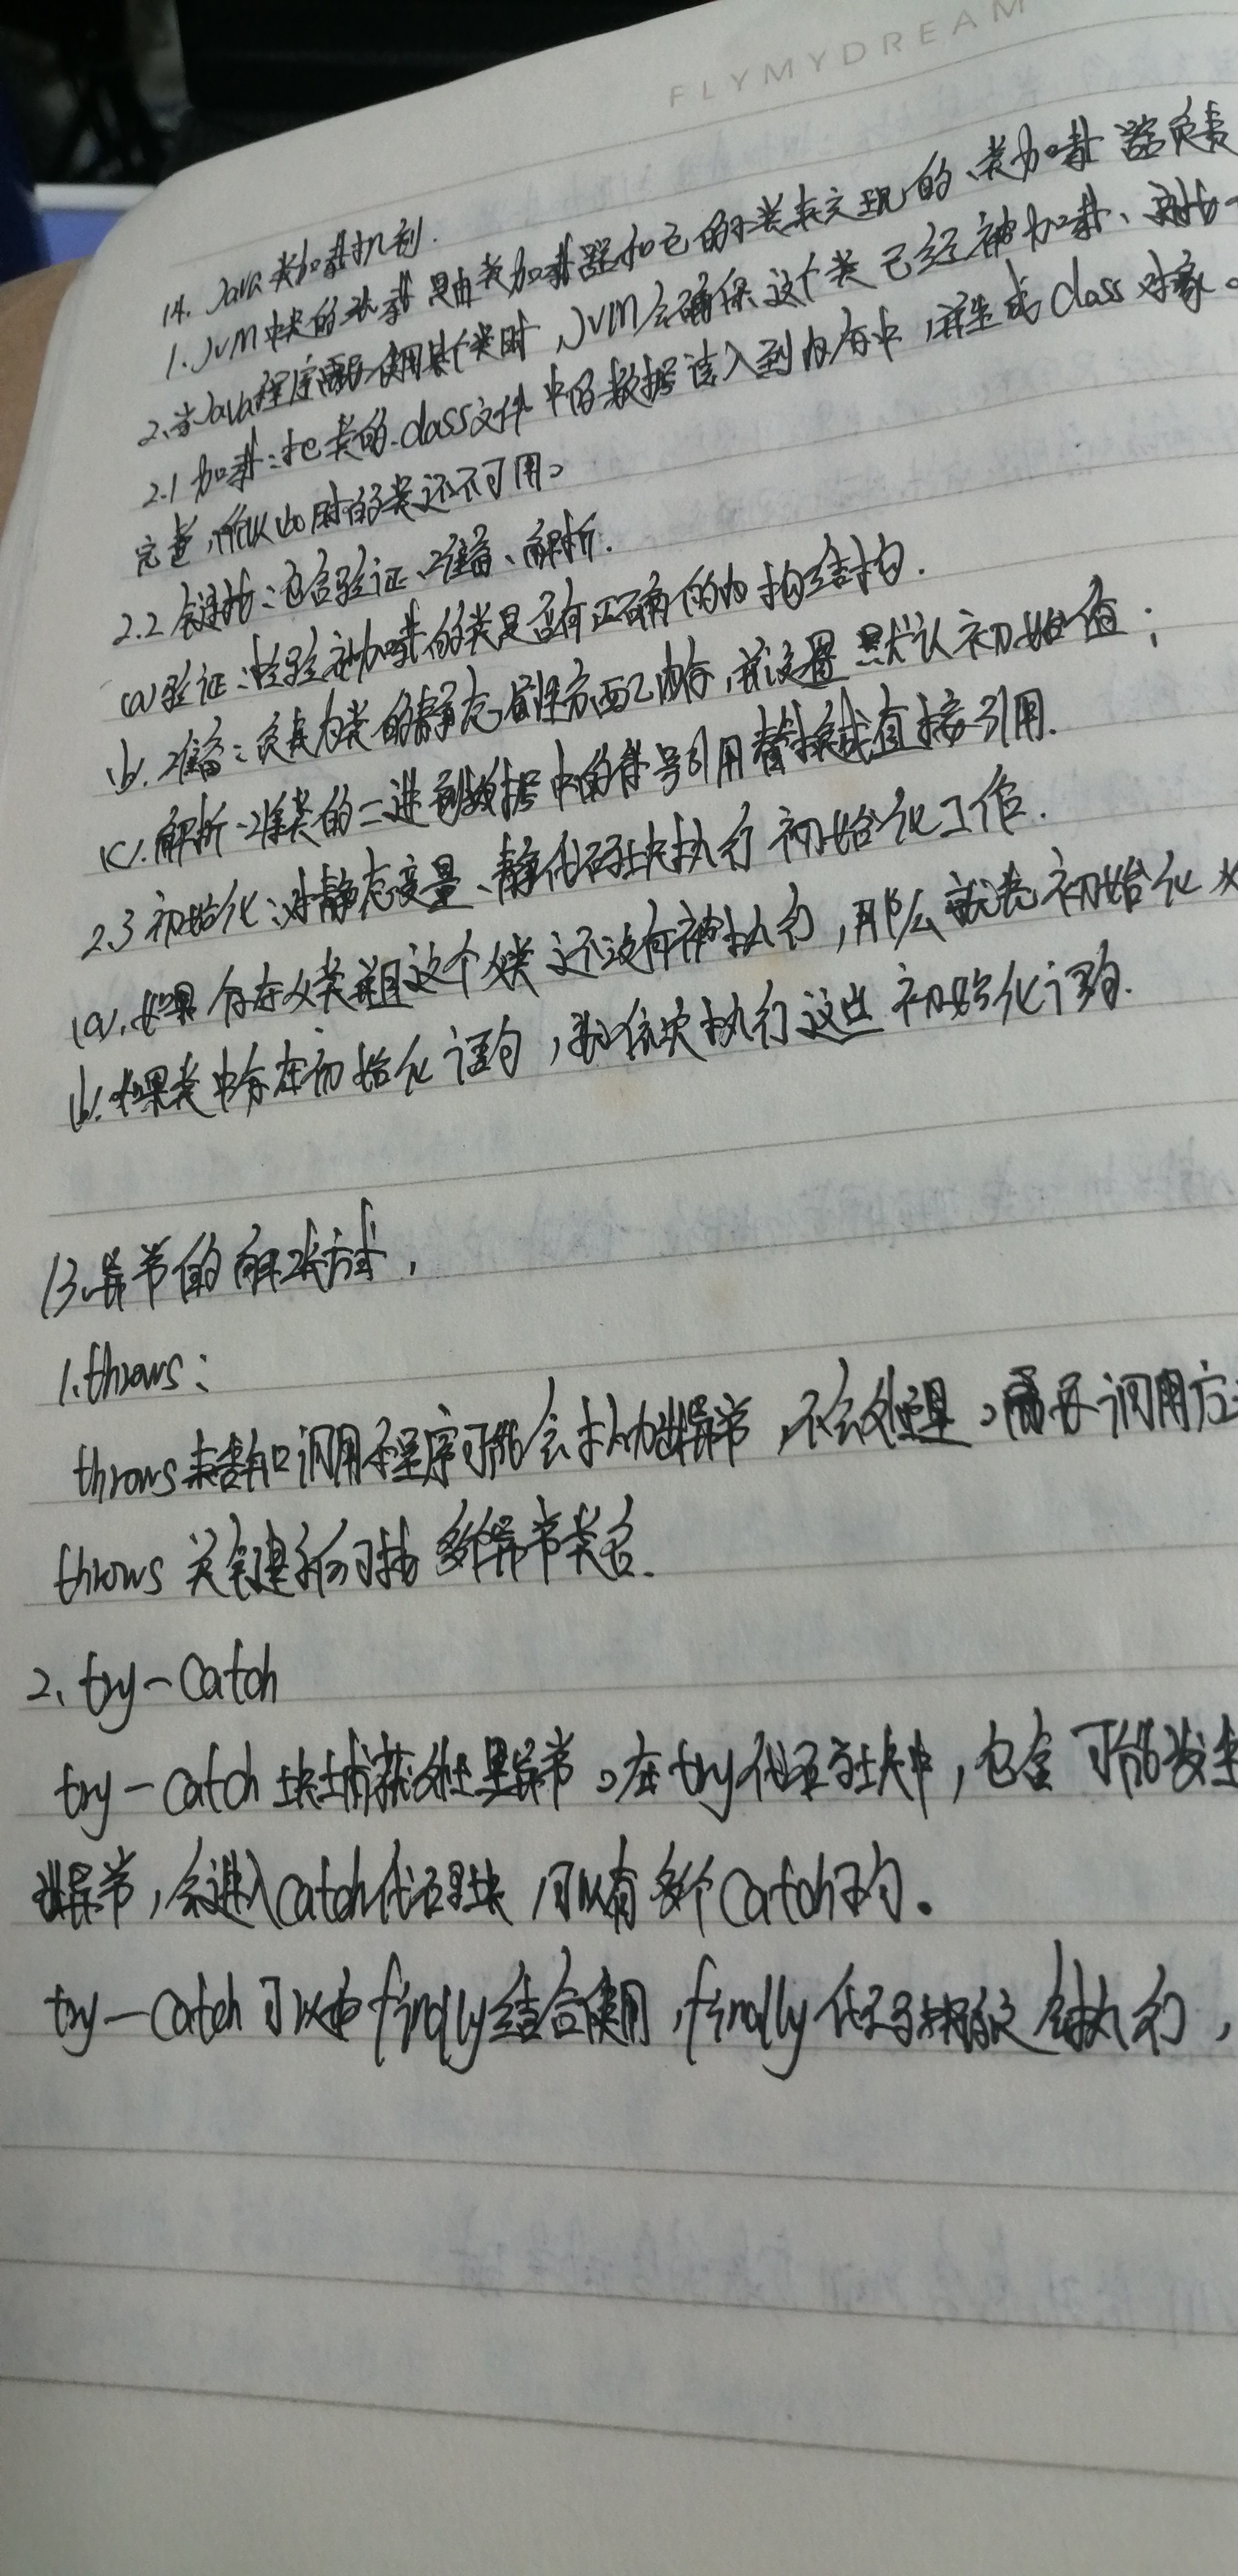 FLYMYDREAM
14. Java类加载机制.
1. JVM中类的装载是由类加载器和它的子类来实现的、类加载器负责
2.当Java程序需要使用某个类时,JVM会确保这个类已经被加载、
2.1 加载:把类的.class文件中的数据读入到内存中,并生成class对象。
完整,所以此时的类还不可用。
2.2 链接:包含验证、准备、解析.
(a)验证:检验被加载的类是否有正确的内部结构.
(b).准备:负责为类的静态属性分配内存,并设置默认初始值;
(c).解析:将类的二进制数据中的符号引用替换成直接引用.
2.3 初始化:对静态变量、静态代码块执行初始化工作.
(a).如果存在父类并且这个父类还没有被执行,那么就先初始化
(b).如果类中存在初始化语句,就依次执行这些初始化语句.
13.异常的解决方式,
1.throws:
throws来告知调用程序可能会抛出异常,不会处理。需要调用方
throws关键字后可接多个异常类名.
2、try-catch
try-catch块捕获处理异常。在try代码块中,包含可能发生
出异常,会进入catch代码块 可以有多个catch子句。
try-catch可以由finally结合使用,finally代码块